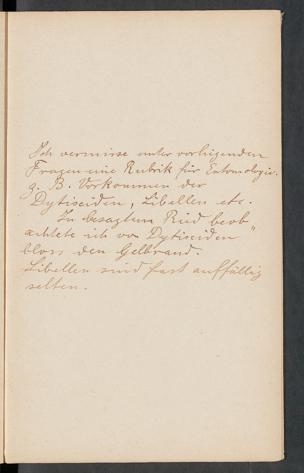 Ich vermisse unter vorliegenden
Fragen eine Rubrik für Entomologie.
z. B. Vorkommen der
Dytisciden, Libellen etc.
In besagtem Ried beob-
achtete ich von Dytisciden
bloss den Gelbrand.
Libellen sind fast auffällig
selten.